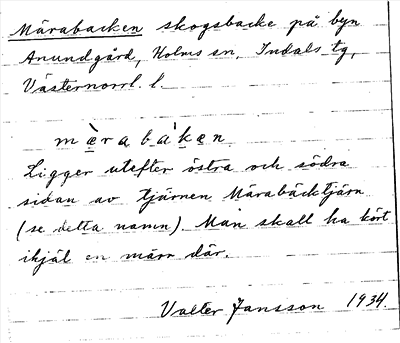 Märabacken skogsbacke på byn
Anundgård, Holms sn, Indals tg,
Västernorrl. l.
mὲrabàkęn
Ligger utefter östra och södra
sidan av tjärnen Märabäcktjärn
(se detta namn). Man skall ha kört
ihjäl en märr där.
Valter Jansson 1934.